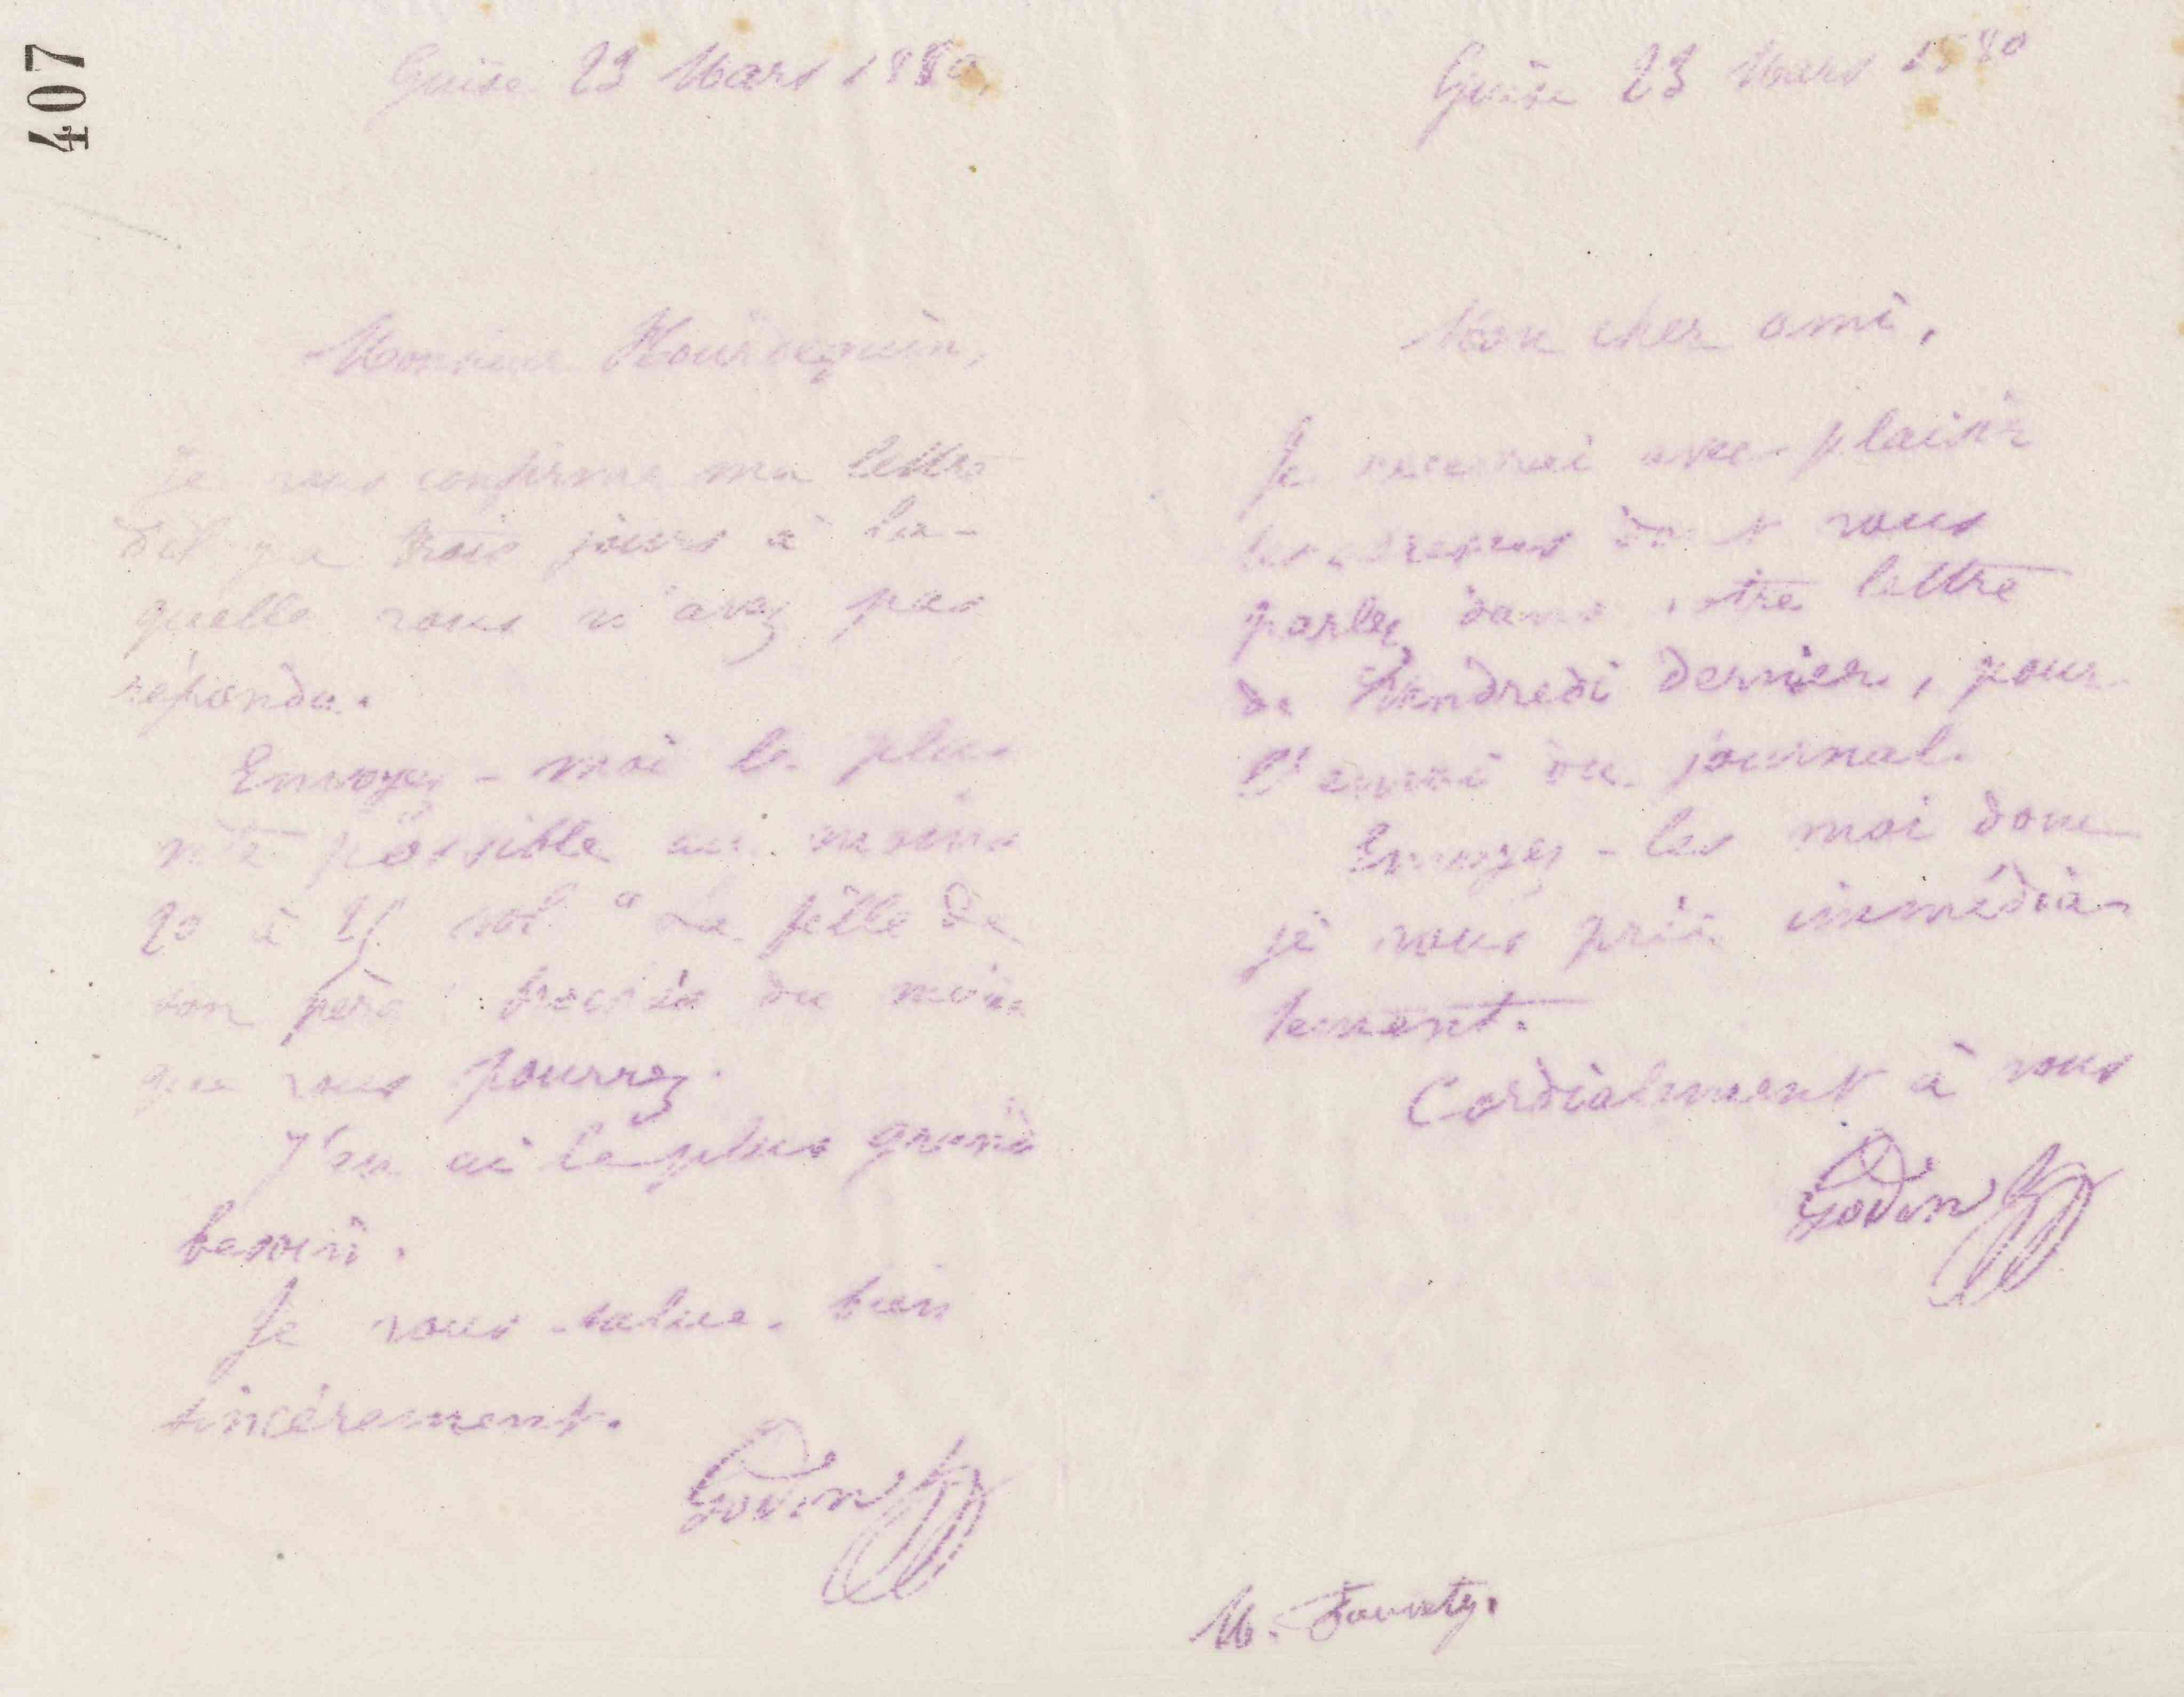 407
Guise 23 Mars 1880,
Monsieur Hourdequin,
je vous confirme ma lettre
d'il y a trois jours à la-
quelle vous n'avez pas
répondu.
Envoyez-moi le plus
vite possible au moins
20 à 25 vol "La fille de
son père" brochés ou moins
que vous pourrez.
J'en ai le plus grand
besoin.
Je vous salue bien
sincèrement.
Godin
Guise 23 Mars 1880
Mon cher ami,
Je recevrai avec plaisir
les adresses dont vous
parlez dans votre lettre
de Vendredi dernier, pour
l'envoi du journal.
Envoyez-les moi donc
je vous prie immédia-
tement.
Cordialement à vous
Godin
M. Fauvety.